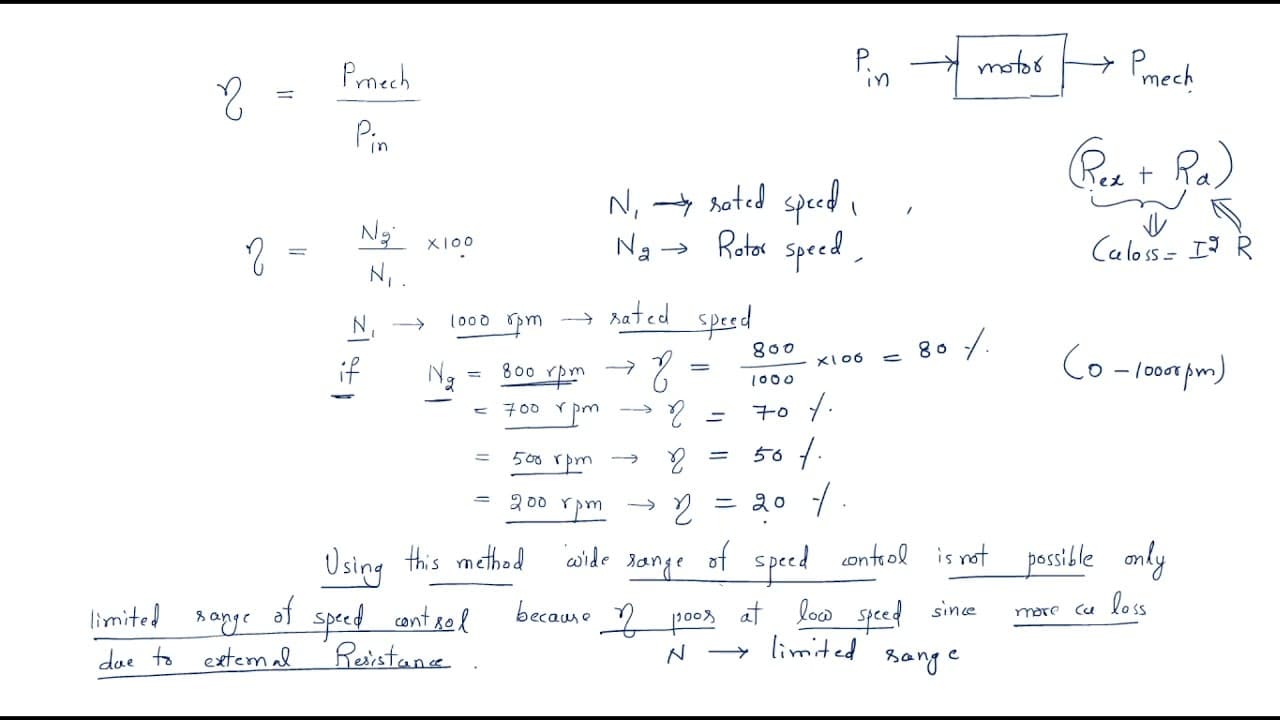 Pin → motor → Pmech
η = Pmech / Pin
(Rex + Ra)
Cu loss = I² R
N1 → rated speed,
N2 → Rotor speed,
η = N2 / N1 × 100
N1 → 1000 rpm → rated speed
if N2 = 800 rpm → η = 800 / 1000 × 100 = 80 %.
(0 - 1000 rpm)
= 700 rpm → η = 70 %.
= 500 rpm → η = 50 %.
= 200 rpm → η = 20 %.
Using this method wide range of speed control is not possible only
limited range of speed control because η poor at low speed since more cu loss
due to external Resistance.
N → limited range